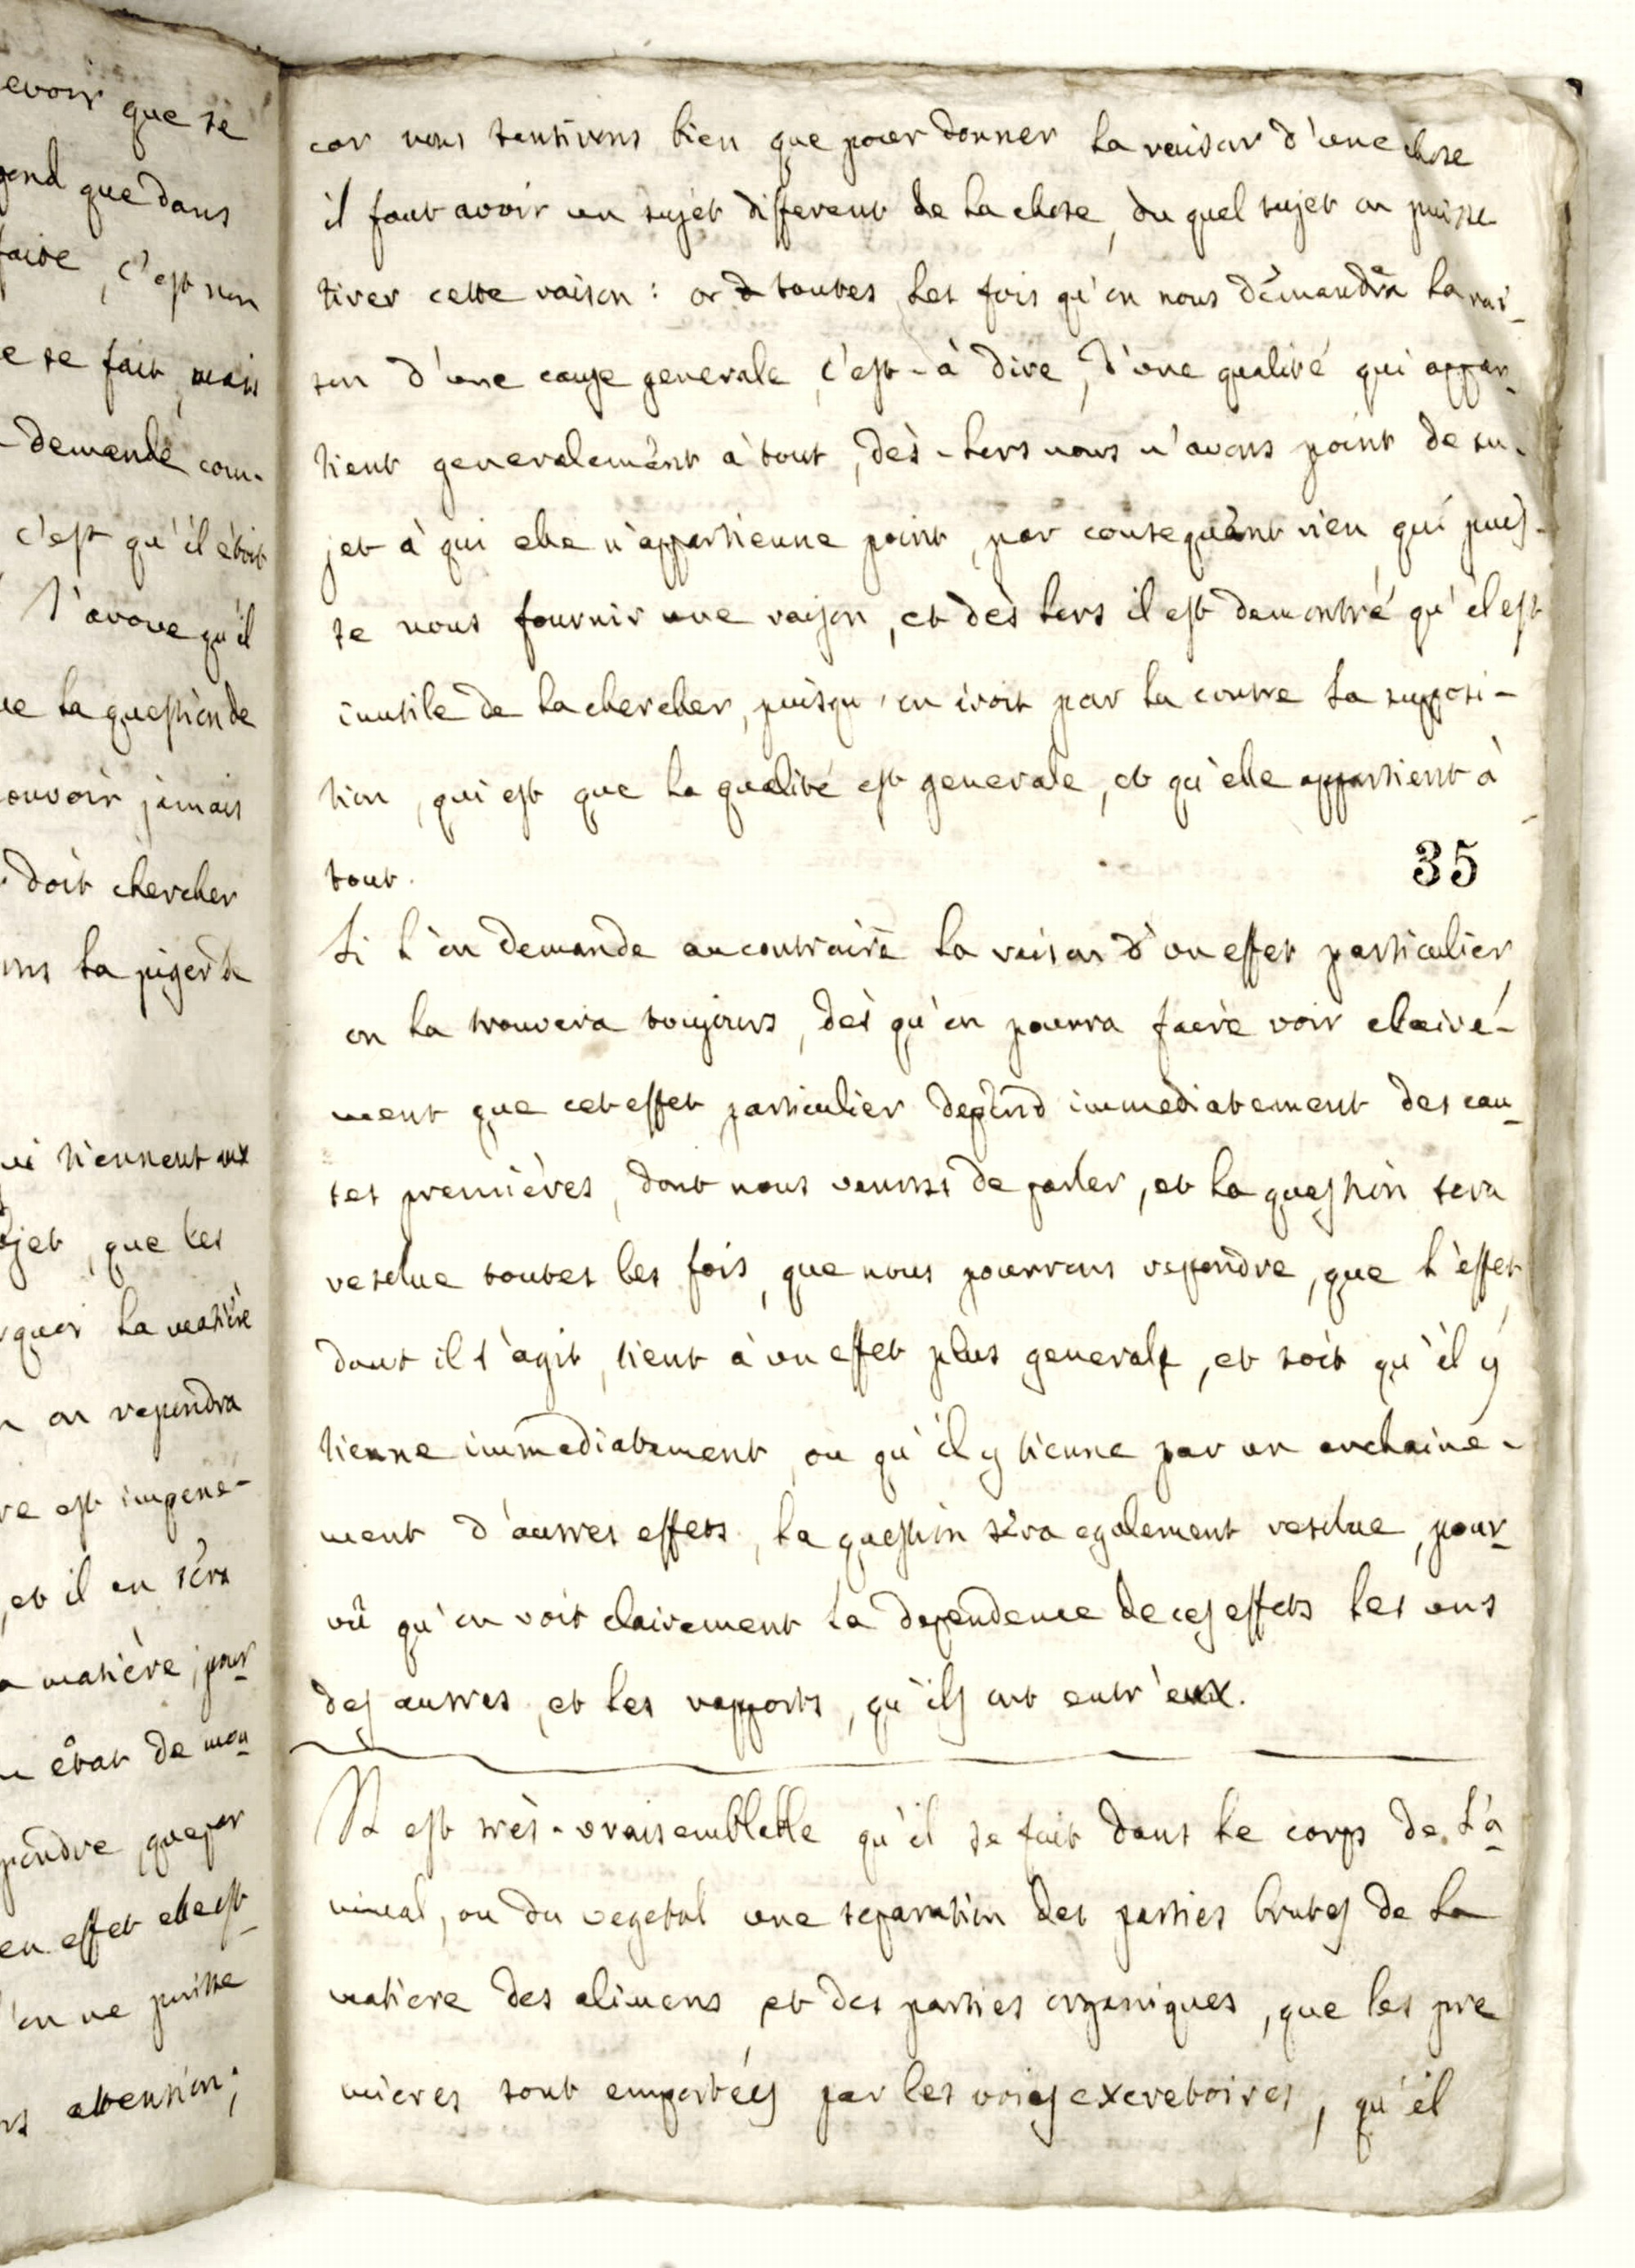 evoir que se
pend que dans
faire, c'est non
e se fait, mais
demande com-
c'est qu'il étoit
J'avoue qu'il
ue la question de
ouvoir jamais
doit chercher
ons la piger de
ui tiennent aux
ojet, que les
rquoi la matière
n on repondra
re est impene-
, et il en sera
a matière, pour
u état de mou
pondre, que par
en effet elle est
'on ne puisse
rs attention;
car nous sentirons bien que pour donner la raison d'une chose
il faut avoir un sujet different de la chose, du quel sujet on puisse
tirer cette raison : or toutes les fois qu'on nous demandra la rai-
son d'une cause generale, c'est-à dire, d'une qualité qui appar-
tient generalement à tout, dès-lors nous n'avons point de su-
jet à qui elle n'appartienne point, par consequent rien qui puis-
se nous fournir une raison, et dès lors il est demontré qu'il est
inutile de la chercher, puisqu'on iroit par la contre la supposi-
tion, qui est que la qualité est generale, et qu'elle appartient à
tout.
35
Si l'on demande au contraire la raison d'un effet particulier,
on la trouvera toujours, dès qu'on pourra faire voir claire-
ment que cet effet particulier depend immediatement des cau-
ses premières, dont nous venons de parler, et la question sera
resolue toutes les fois, que nous pourrons repondre, que l'effet,
dont il s'agit, tient à un effet plus general, et soit qu'il y
tienne immediatement, ou qu'il y tienne par un enchaine-
ment d'autres effets, la question sera egalement resolue, pour-
vû qu'on voit clairement la dependence de ces effets les uns
des autres, et les rapports, qu'ils ont entr'eux.
Il est très-vraisemblable qu'il se fait dans le corps de l'a
nimal, ou du vegetal une separation des parties brutes de la
matiere des alimens et des parties organiques, que les pre
mieres sont emportées par les voies excretoires, qu'il